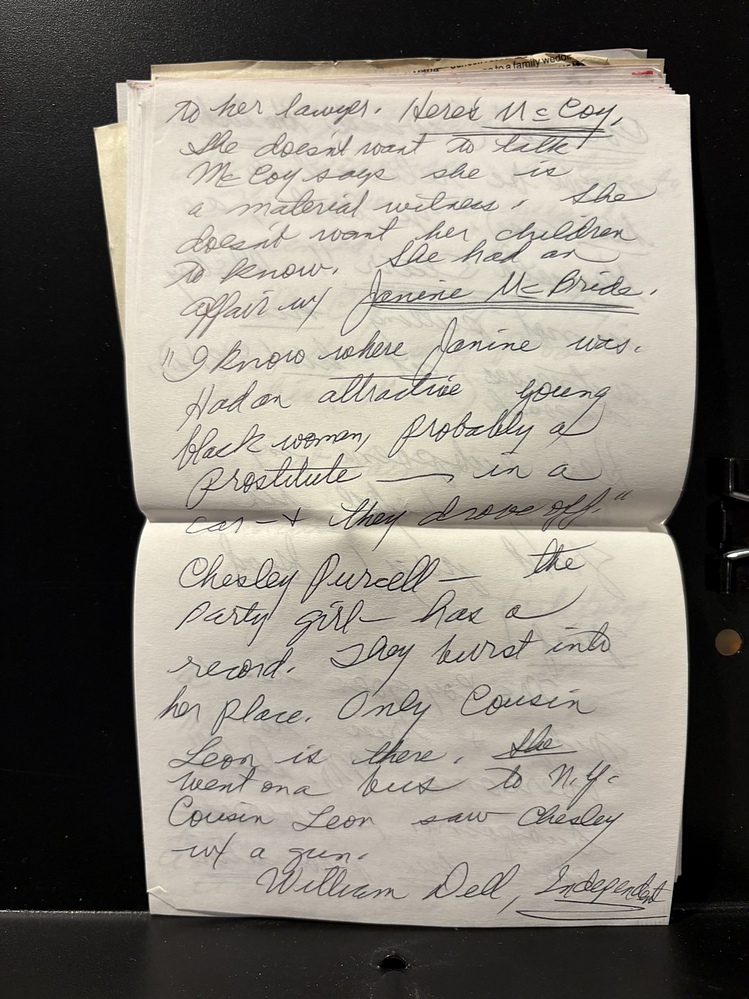 to a family wedd
to her lawyer. Here's McCoy.
She doesn't want to talk
McCoy says she is
a material witness. She
doesn't want her children
to know. She had an
affair w/ Janine McBride.
"I know where Janine was.
Had an attractive young
black woman, probably a
prostitute — in a
car — + they drove off."
Chesley Purcell — the
party girl — has a
record. They burst into
her place. Only Cousin
Leon is there. She
went on a bus to N.Y.
Cousin Leon saw Chesley
w/ a gun.
William Dell, Independent